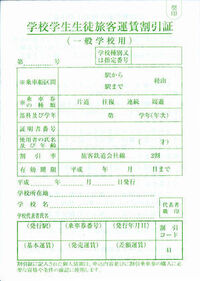 契印
学校学生生徒旅客運賃割引証
(一般学校用)
第 号
学校種別又は指定番号
※乗車船区間
駅から
駅まで
経由
※乗車券の種類
片道 往復 連続 周遊
部科及び学年
第 学年(年次)
証明書番号
使用者の氏名及び年齢
(才)
割引率
旅客鉄道会社線 2割
有効期限
平成 年 月 日まで
平成 年 月 日発行
学校所在地
学校名
学校代表者氏名
代表者職印
(発行駅)
(乗車券番号)
(発行年月日)
割引コード
(基本運賃)
(発売運賃)
(差額運賃)